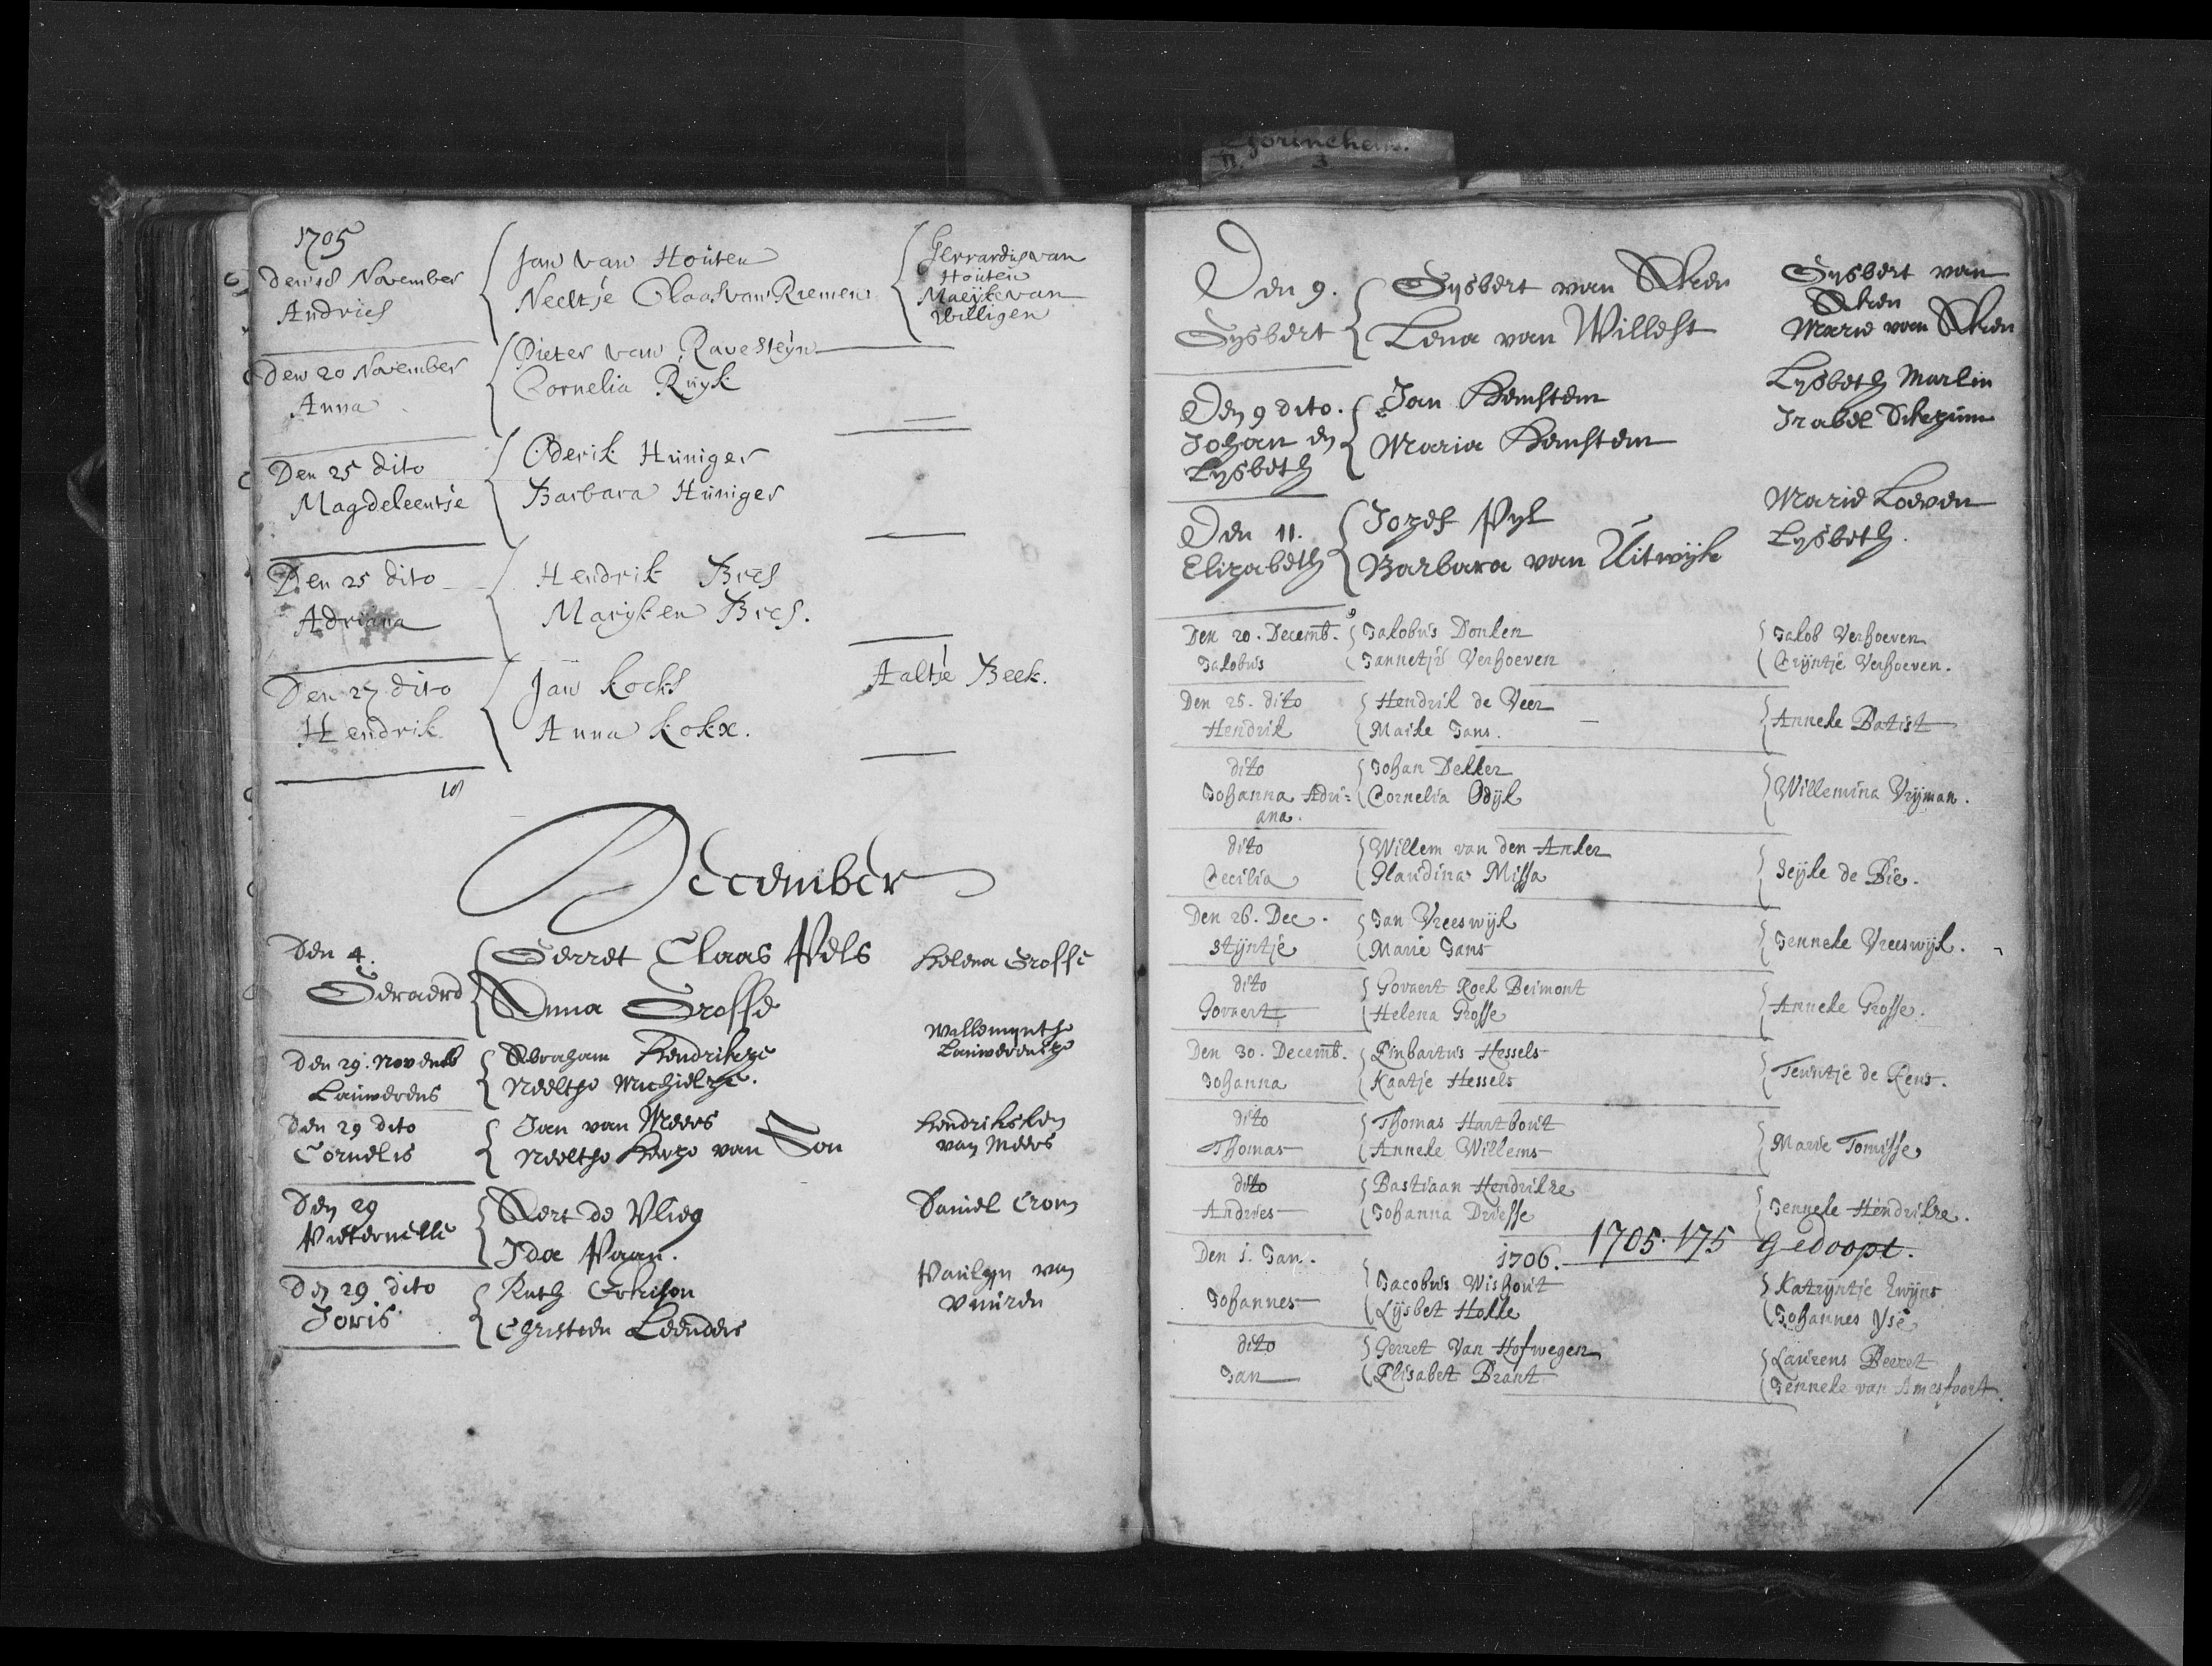 Gorinchem.
3
1705
Den 18 November
Andries
Jan van Houten
Neeltje Claas van Riemen
Gerrardus van
Houten
Maeijke van
Willigen
Den 20 November
Anna
Pieter van Ravesteyn
Cornelia Ruyk
Den 25 dito
Magdeleentje
Oderik Huniger
Barbara Huniger
Den 25 dito
Adriana
Hendrik Bres
Maryken Bres.
Den 27 dito
Hendrik
Jan Kocks
Anna Kokx.
Aaltje Beek.
December
Den 4.
Geraerd
Gerret Claas Pels
Anna Grosse
Helena Grosse
Den 29. Novemb
Lauwerens
Abraham Hendrikze
Neeltje Michielze.
Willemyntje
Lauwerensze
Den 29 dito
Cornelis
Jan van Meers
Neeltje van Son
Hendriksken
van Meers
Den 29
Pieternelle
Aert de Vlieg
Ida Paan.
Daniel Crom
Den 29 dito
Joris
Ruth
Christien Leenders
Paulyn van
Vuuren
Den 9.
Gysbert
Gysbert van Aken
Lena van Willest
Gysbert van
Aken
Marie van Aken
Den 9 dito.
Johan en
Lysbeth
Jan Kemstem
Maria Kemstem
Lysbeth Marlin
Izabel
Den 11.
Elizabeth
Jozef Pyl
Barbara van Uitwyk
Marie Loeven
Lysbeth.
Den 20. Decemb.
Jakobus
Jakobus Donken
Jannetje Verhoeven
Jakob Verhoeven
Crijntje Verhoeven.
Den 25. dito
Hendrik
Hendrik de Veer
Maike Jans.
Anneke Batist
dito
Johanna Adri=
ana.
Johan Dekker
Cornelia Odijk
Willemina Vrijman.
dito
Cecilia
Willem van den Anker
Glaudina Missa
Seijke de Bie.
Den 26. Dec.
Stijntje
Jan Vreeswijk
Marie Jans
Jenneke Vreeswijk.
dito
Govaert
Govaert Roek Beimont
Helena Grosse
Anneke Grosse.
Den 30. Decemb.
Johanna
Pinbartus Hessels
Kaatje Hessels
Teuntje de Rens.
dito
Thomas
Thomas Hartbout
Anneke Willems
Marie Tomisse
dito
Andries
Bastiaan Hendrikze
Johanna Driesse
Jenneke Hendrikze.
1705. 175 gedoopt.
1706.
Den 1. Jan.
Johannes
Jacobus Wishout
Lijsbet Holle
Katrijntje Zwijns
Johannes Yse
dito
Jan
Gerret Van Hofwegen
Elisabet Brant
Laurens Beeret
Jenneke van Amesfoort.